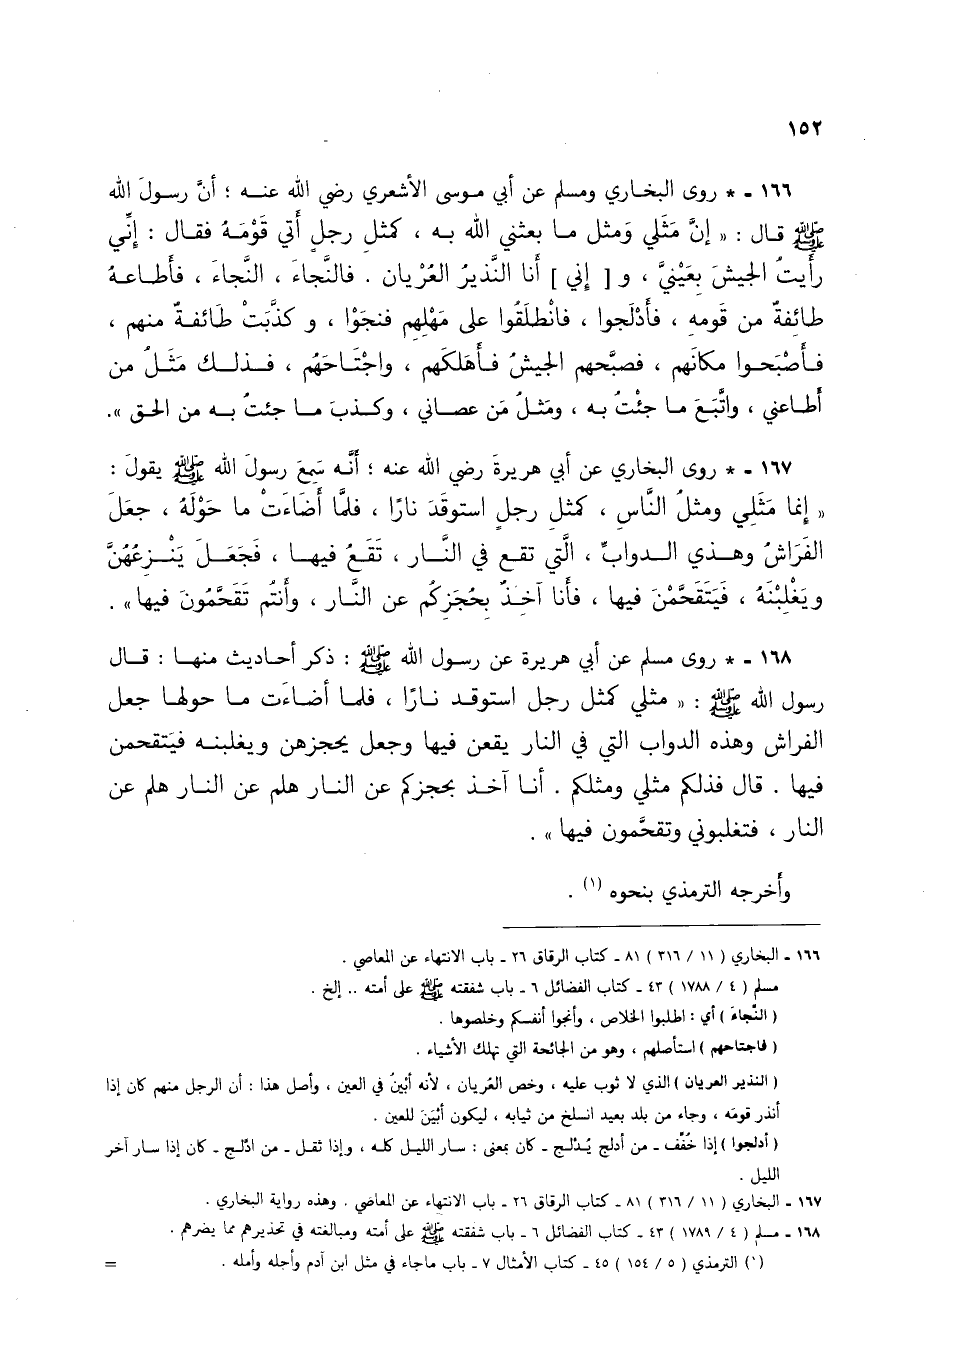 ١٥٢
١٦٦ - * روى البخاري ومسلم عن أبي موسى الأشعري رضي الله عنه ؛ أنَّ رسولَ الله
ﷺ قال : « إنَّ مَثَلي وَمثل ما بعثني الله به ، كمثل رجلٍ أتى قَوْمَهُ فقال : إنِّي
رأيتُ الجيشَ بعَيْنيَّ ، و [ إني ] أنا النَّذيرُ العُرْيان . فالنَّجاءَ ، النَّجاءَ ، فأطاعهُ
طائفةٌ من قومِه ، فأَدْلَجوا ، فانْطلَقُوا على مَهْلِهم فنجَوْا ، و كذَّبَتْ طائفةٌ منهم ،
فأصْبَحوا مكانَهم ، فصبَّحهم الجيشُ فأهلَكهم ، واجْتَاحَهُم ، فذلك مَثَلُ من
أطاعني ، واتَّبَعَ ما جئْتُ به ، ومَثلُ مَن عصاني ، وكذبَ ما جئتُ به من الحق ».
١٦٧ - * روى البخاري عن أبي هريرةَ رضي الله عنه ؛ أنَّه سَمِعَ رسولَ الله ﷺ يقولُ :
« إنما مَثَلِي ومثلُ النَّاسِ ، كمثل رجلٍ استوقَدَ نارًا ، فلمَّا أضَاءَتْ ما حَوْلَهُ ، جعَلَ
الفَرَاشُ وهذي الدوابُّ ، الَّتي تقع في النَّار ، تَقَعُ فيها ، فَجَعَلَ يَنْزعُهُنَّ
ويَغْلِبْنَهُ ، فَيَتَقَحَّمْنَ فيها ، فأنا آخِذٌ بحُجَزِكُم عن النَّار ، وأنتُم تَقَحَّمُونَ فيها» .
١٦٨ - * روى مسلم عن أبي هريرة عن رسول الله ﷺ : ذكر أحاديث منها : قال
رسول الله ﷺ : « مثلي كمثل رجل استوقد نارًا ، فلما أضاءَت ما حولها جعل
الفراش وهذه الدواب التي في النار يقعن فيها وجعل يحجزهن ويغلبنه فيَتقحمن
فيها . قال فذلكم مثلي ومثلكم . أنا آخذ بحجزكم عن النار هلم عن النار هلم عن
النار ، فتغلبوني وتقحَّمون فيها » .
وأخرجه الترمذي بنحوه (١) .
١٦٦ - البخاري ( ١١ / ٣١٦ ) ٨١ - كتاب الرقاق ٢٦ - باب الانتهاء عن المعاصي .
مسلم ( ٤ / ١٧٨٨ ) ٤٣ - كتاب الفضائل ٦ - باب شفقته ﷺ على أمته .. إلخ .
( النَّجاءَ ) أي : اطلبوا الخلاص ، وأنجوا أنفسكم وخلصوها .
( فاجتاحهم ) استأصلهم ، وهو من الجائحة التي تهلك الأشياء .
( النذير العريان ) الذي لا ثوب عليه ، وخص العُريان ، لأنه أبْيَنُ في العين ، وأصل هذا : أن الرجل منهم كان إذا
أنذر قومَه ، وجاء من بلد بعيد انسلخ من ثيابه ، ليكون أبْيَنَ للعين .
( أدلجوا ) إذا خُفِّف - من أدلج يُدْلج - كان بمعنى : سار الليل كله ، وإذا ثقل - من ادَّلج - كان إذا سار آخر
الليل .
١٦٧ - البخاري ( ١١ / ٣١٦ ) ٨١ - كتاب الرقاق ٢٦ - باب الانتهاء عن المعاصي . وهذه رواية البخاري .
١٦٨ - مسلم ( ٤ / ١٧٨٩ ) ٤٣ - كتاب الفضائل ٦ - باب شفقته ﷺ على أمته ومبالغته في تحذيرهم مما يضرهم .
(١) الترمذي ( ٥ / ١٥٤ ) ٤٥ - كتاب الأمثال ٧ - باب ماجاء في مثل ابن آدم وأجله وأمله . =